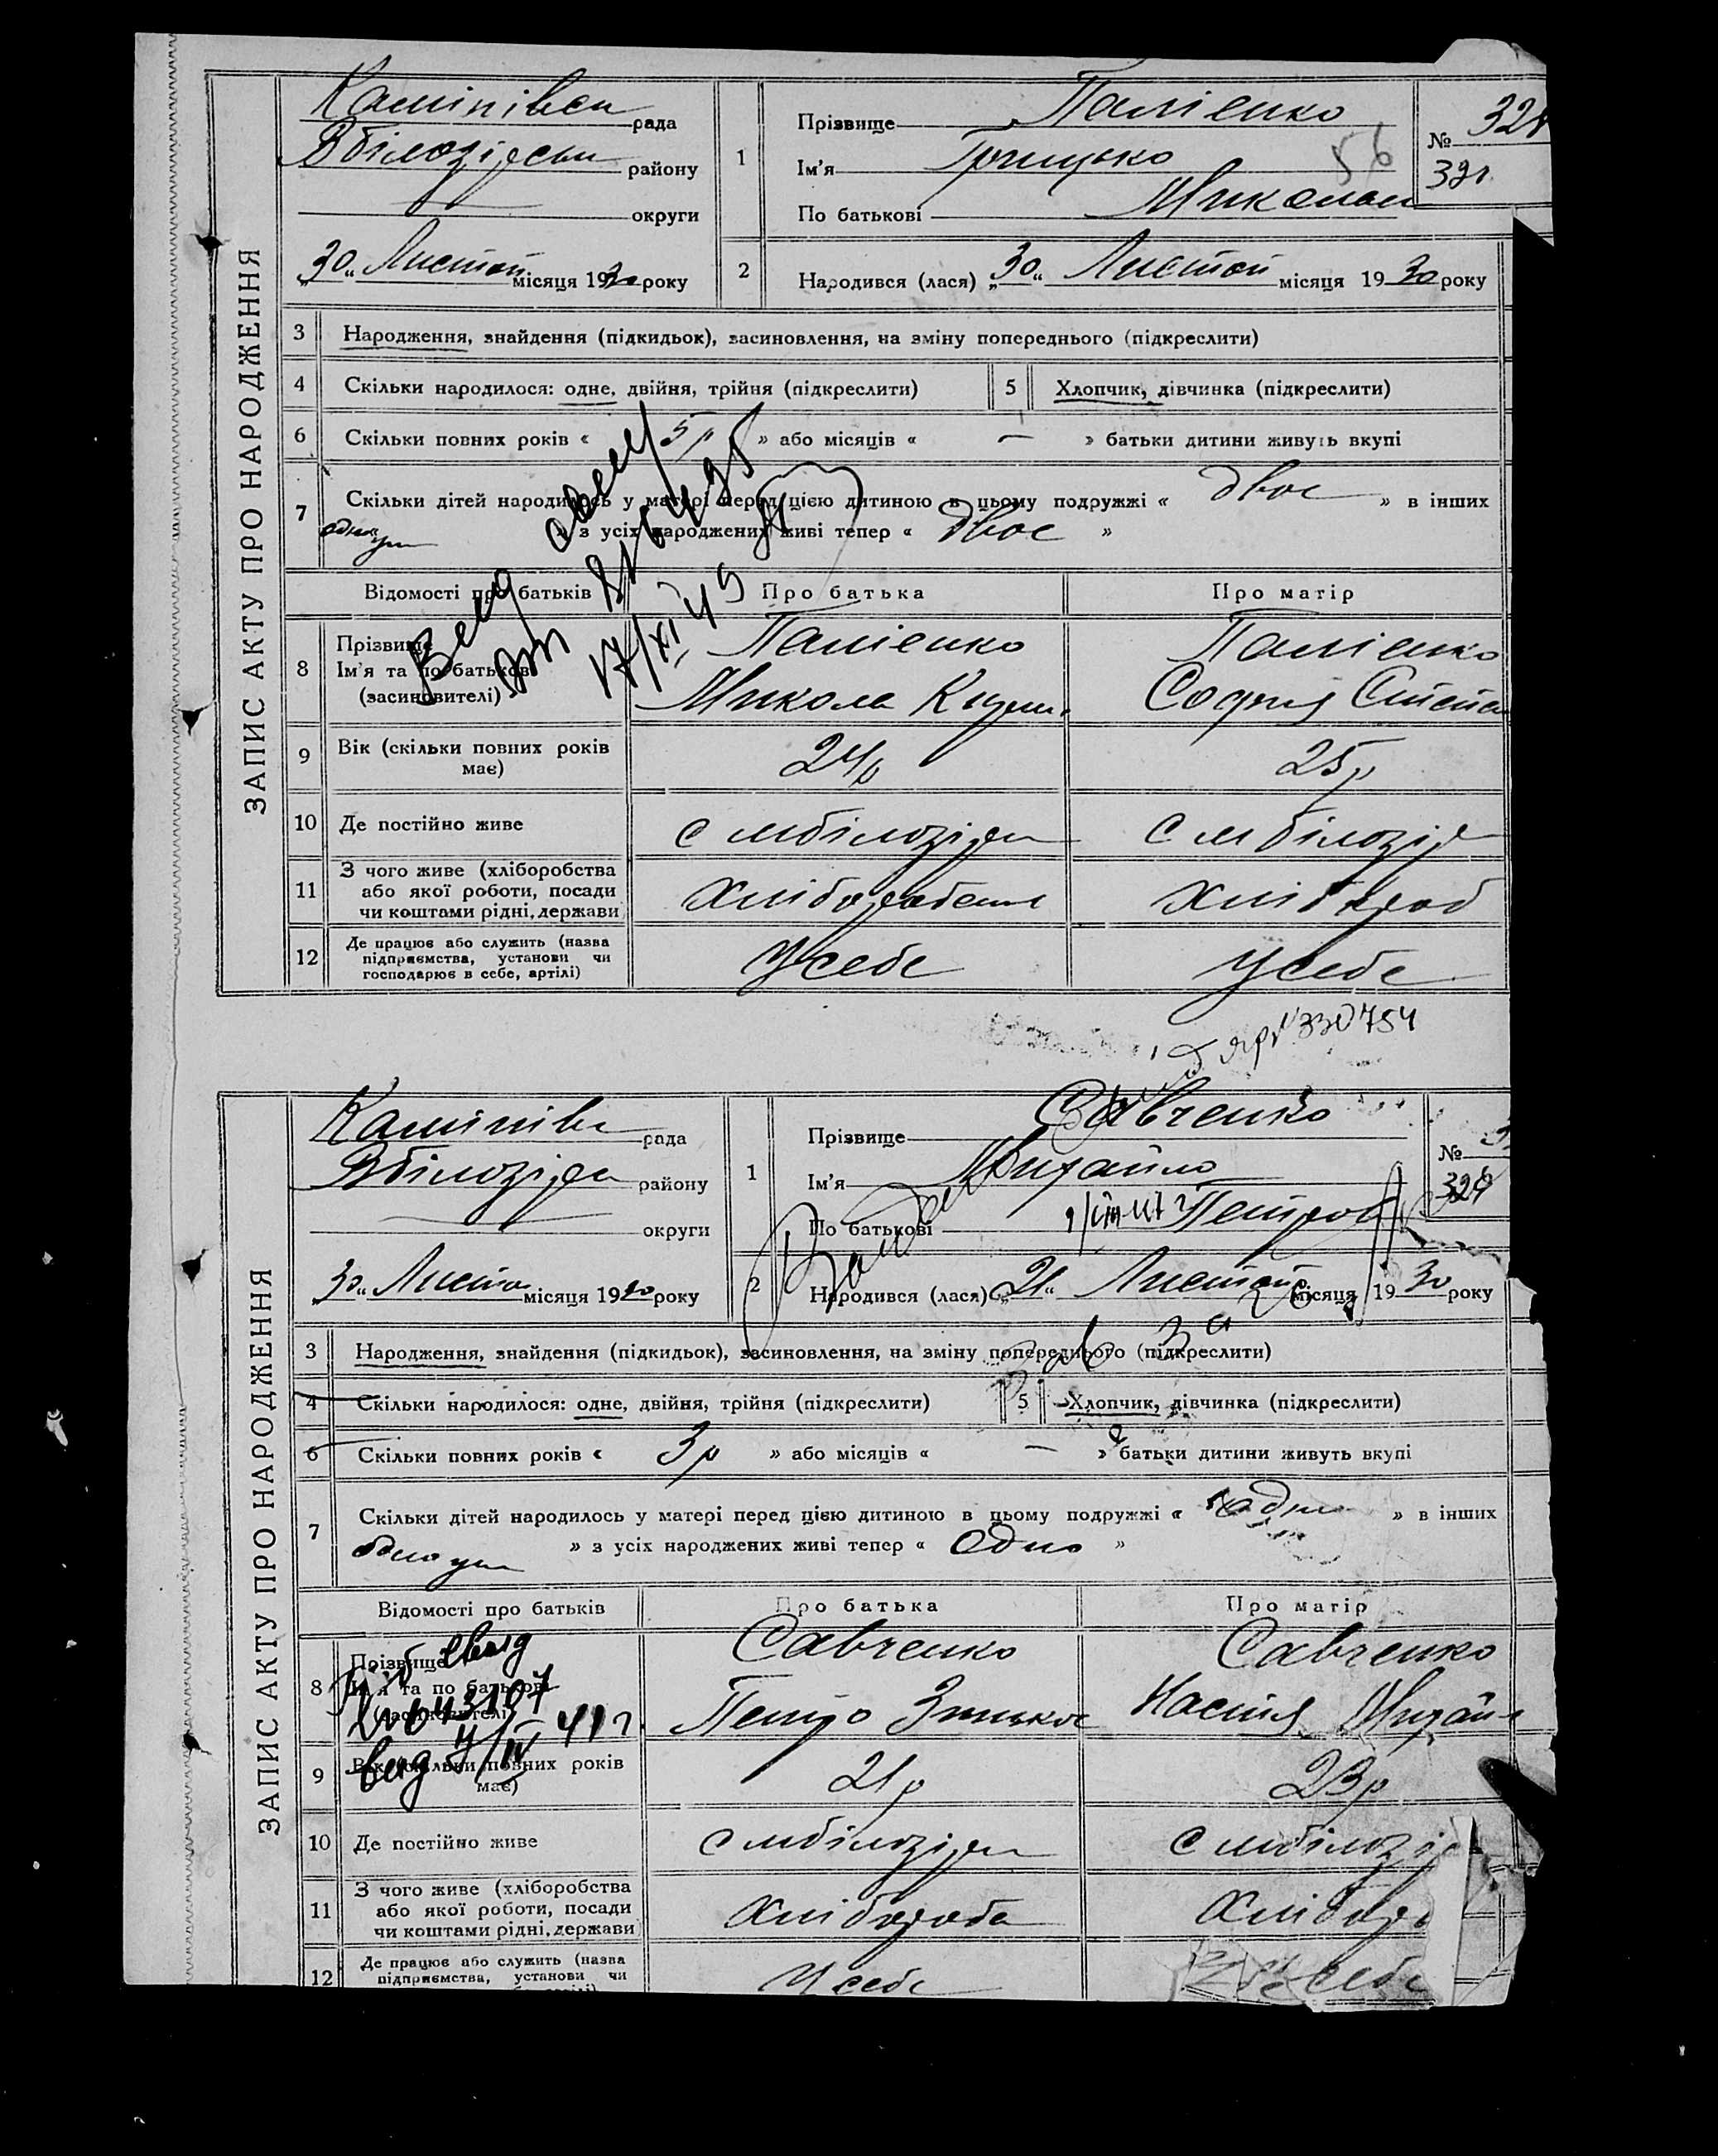 ЗАПИС АКТУ ПРО НАРОДЖЕННЯ
рада
Вбілозірськ району
округи
30 Листоп місяця 1930 року
1
Прізвище Палієнко
Ім'я Грицько 56
По батькові Миколаи
№ 328
2 Народився (лася) „30“ Листоп місяця 1930 року
3 Народження, знайдення (підкидьок), засиновлення, на зміну попереднього (підкреслити)
4 Скільки народилося: одне, двійня, трійня (підкреслити) 5 Хлопчик, дівчинка (підкреслити)
6 Скільки повних років « 5 р » або місяців « — » батьки дитини живуть вкупі
7 Скільки дітей народилось у матері перед цією дитиною в цьому подружжі « двоє » в інших
» з усіх народжених живі тепер « двоє »
17/XI 45
Відомості про батьків Про батька Про матір
8 Прізвище Палієнко Палієнко
Ім'я та по батькові Микола Софія Степан
(засиновителі)
9 Вік (скільки повних років має) 24 р 25 р
10 Де постійно живе с мбілозірк с мбілозір
11 З чого живе (хліборобства
або якої роботи, посади
чи коштами рідні, держави хліборob
12 Де працює або служить (назва
підприємства, установи чи
господарює в себе, артілі) У себе У себе
№ 330754
ЗАПИС АКТУ ПРО НАРОДЖЕННЯ
рада
району
округи
30 Листоп місяця 1930 року
1
Прізвище Савченко
Ім'я Михайло
По батькові Петров
№
2 Народився (лася) „21“ Листоп місяця 1930 року
3 Народження, знайдення (підкидьок), засиновлення, на зміну попереднього (підкреслити)
4 Скільки народилося: одне, двійня, трійня (підкреслити) 5 Хлопчик, дівчинка (підкреслити)
6 Скільки повних років « 3 р » або місяців « — » батьки дитини живуть вкупі
7 Скільки дітей народилось у матері перед цією дитиною в цьому подружжі « одн » в інших
одно ум » з усіх народжених живі тепер « одно »
Відомості про батьків Про батька Про матір
8 Прізвище Савченко Савченко
Ім'я та по батькові Петро Зинько Настя Михайл
(засиновителі)
9 Вік (скільки повних років має) 21 р 23 р
10 Де постійно живе с мбілозірк с мбілозір
11 З чого живе (хліборобства
або якої роботи, посади
чи коштами рідні, держави хлібороба хлібор
12 Де працює або служить (назва
підприємства, установи чи У себе себе